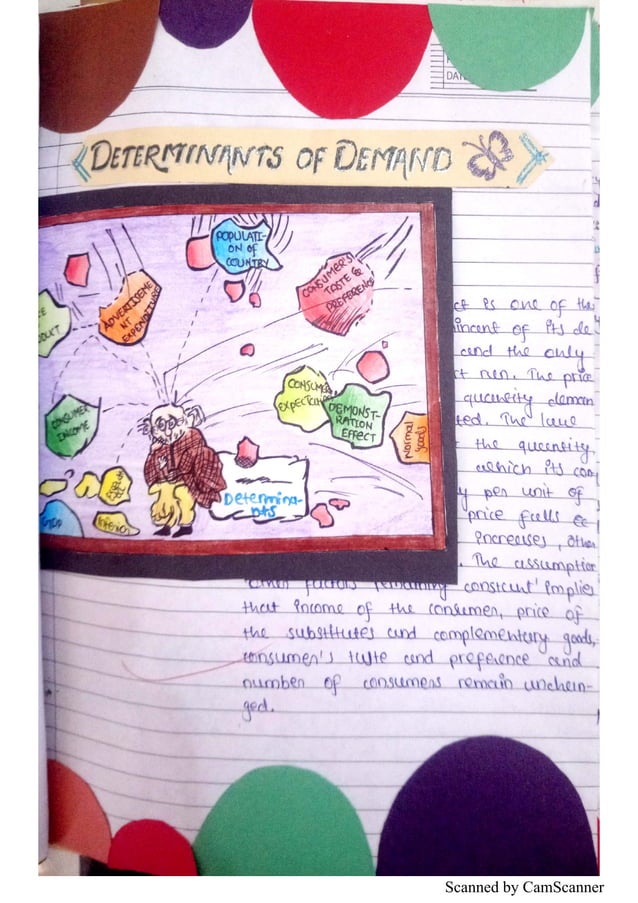 DETERMINANTS OF DEMAND
DAT
POPULATI-
ON OF
COUNTRY
CONSUMER'S
TASTE &
PREFERENCE
ADVERTISEME
NT
EXPENDITURE
CONSUMER
INCOME
CONSUMER
DEMONST-
RATION
EFFECT
Normal
goods
Inferior
Determina-
nts
ct is one of the
of its de
and the only
The price
quantity deman
ted. The law
the quantity
which its con
y per unit of
price falls
Increases, other
. The assumption
other factors remaining constant' implies
that income of the consumer, price of
the substitutes and complementary goods,
consumer's taste and preference and
number of consumers remain unchan-
ged.
Scanned by CamScanner